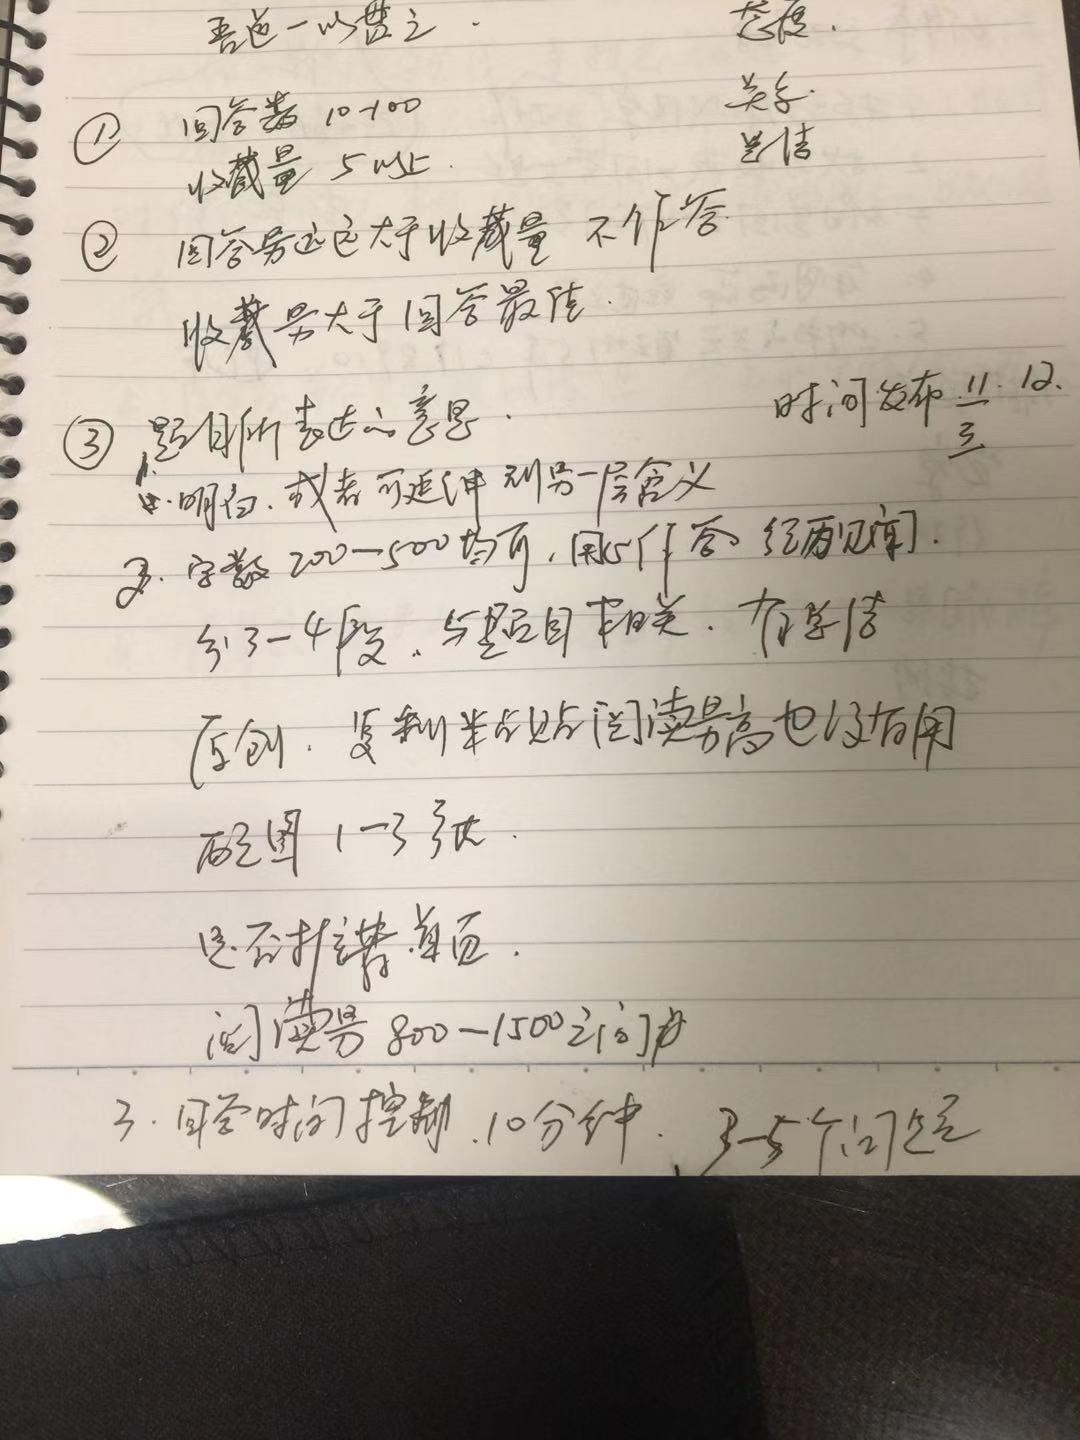 吾道一以贯之. 态度.
① 回答数 10-100 关系.
收藏量 5以上. 总结
② 回答量远远大于收藏量 不作答
收藏量大于回答最佳.
时间发布 11. 12.
③ 题目所表达的意思.
1. 明白. 或者可延伸到另一层含义
2. 字数 200-500均可, 用心作答 经历见闻.
分3-4段. 与题目相关. 有总结
原创. 复制粘贴阅读量高也没有用
配图 1-3张.
是否推荐首页.
阅读量 800-1500之间
3. 回答时间控制. 10分钟. 3-5个问题